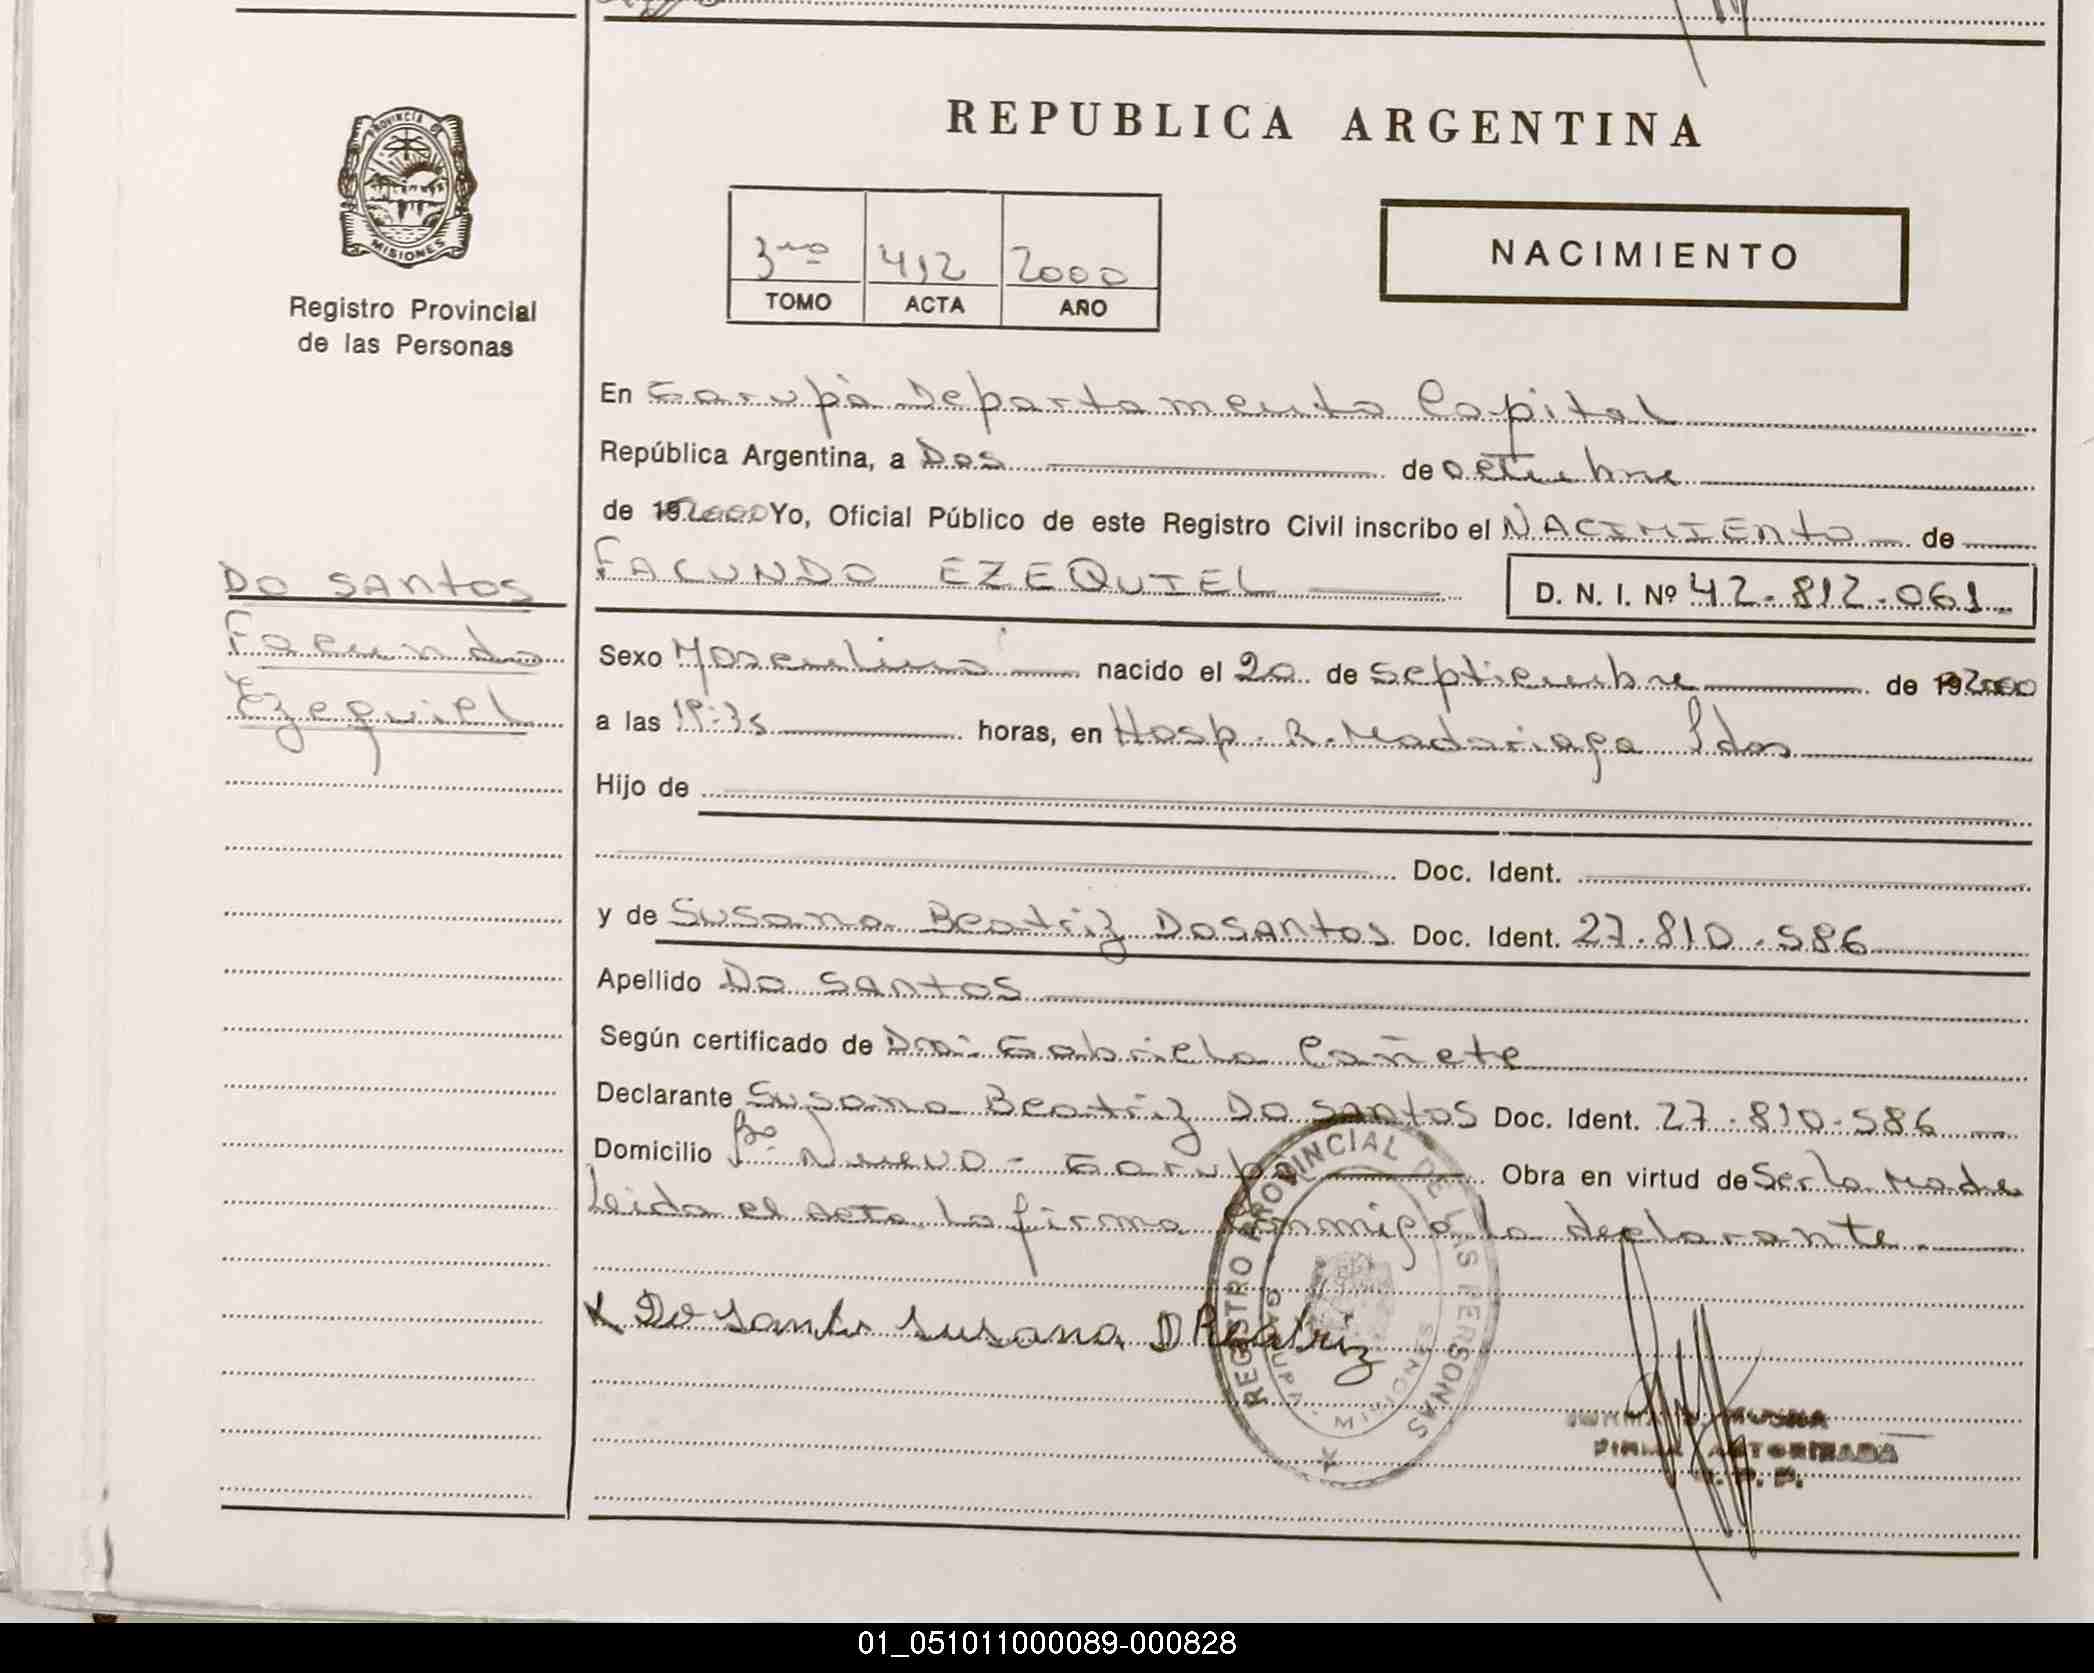 REPUBLICA ARGENTINA
PROVINCIA DE
MISIONES
Registro Provincial
de las Personas
3ro 412 2000
TOMO ACTA AÑO
NACIMIENTO
En Garupá Departamento Capital
República Argentina, a Dos de octubre
de 192000 Yo, Oficial Público de este Registro Civil inscribo el NACIMIENto de
DO SANtOS
Facundo
Ezequiel
FACUNDO EZEQUIEL D. N. I. Nº 42.812.061
Sexo Masculino nacido el 20 de septiembre de 192000
a las 19:35 horas, en Hosp. R. Madariaga Pdas
Hijo de
Doc. Ident.
y de Susana Beatriz DoSANtos Doc. Ident. 27.810.586
Apellido Do SANtOS
Según certificado de Dra: Gabriela Cañete
Declarante Susana Beatriz Do SANtOS Doc. Ident. 27.810.586
Domicilio Bo Nuevo - Garupá Obra en virtud de Ser la Madre
Leida el acta la firma conmigo la declarante.
X Do Santos Susana Beatriz
REGISTRO PROVINCIAL DE LAS PERSONAS
GARUPA - MISIONES
FIRMA AUTORIZADA
R. P. P.
01_051011000089-000828